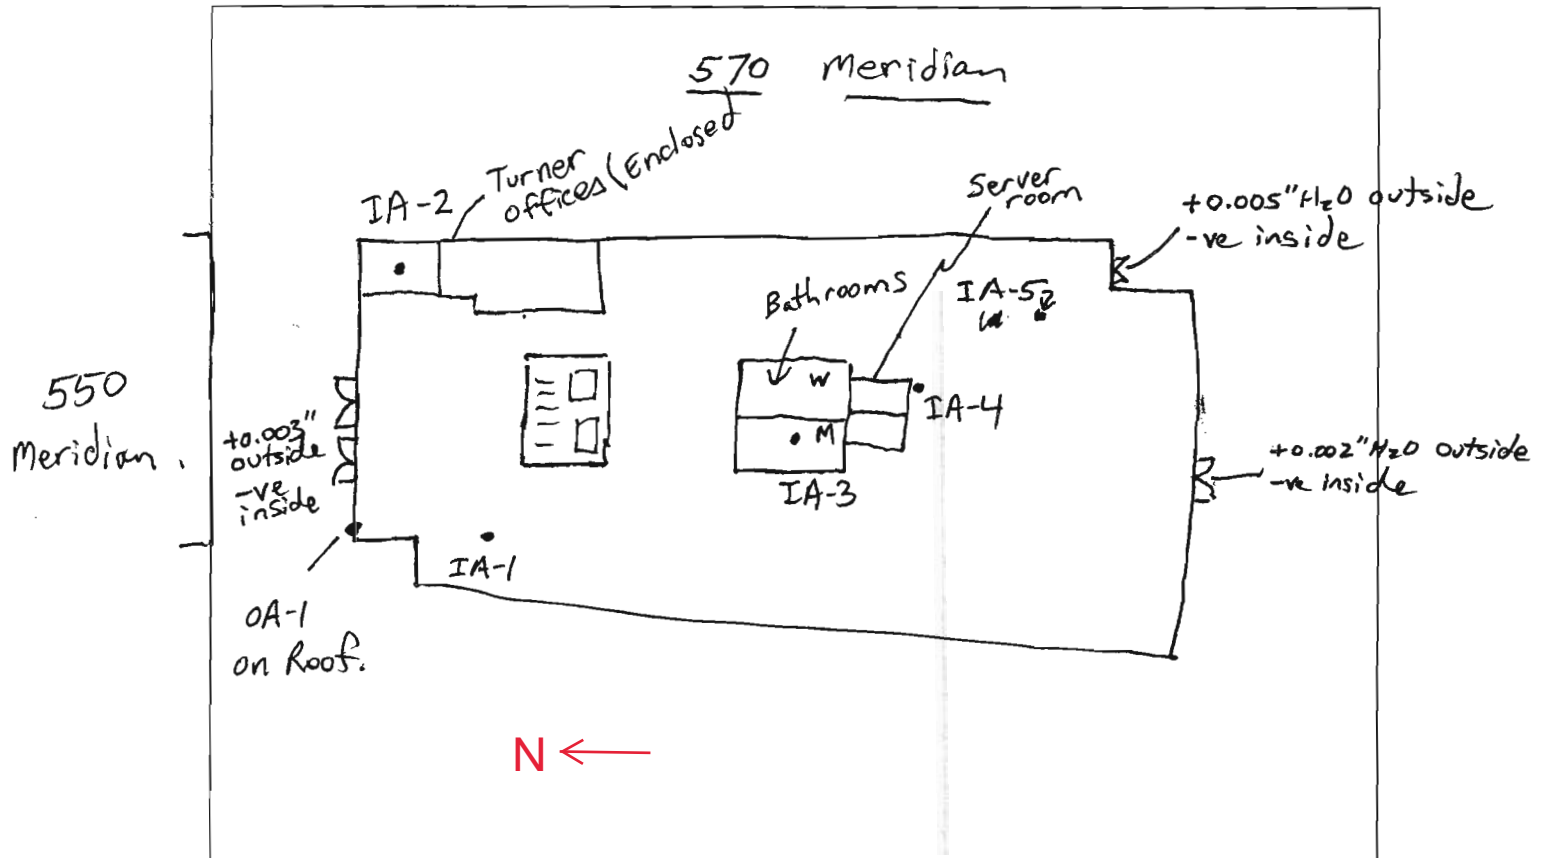 570 Meridian
Turner
offices (Enclosed
IA-2
Server
room
+0.005"H2O outside
-ve inside
Bathrooms
IA-5
550
Meridian.
W
IA-4
+0.003"
outside
-ve
inside
M
IA-3
+0.002"H2O outside
-ve inside
IA-1
OA-1
on Roof.
N